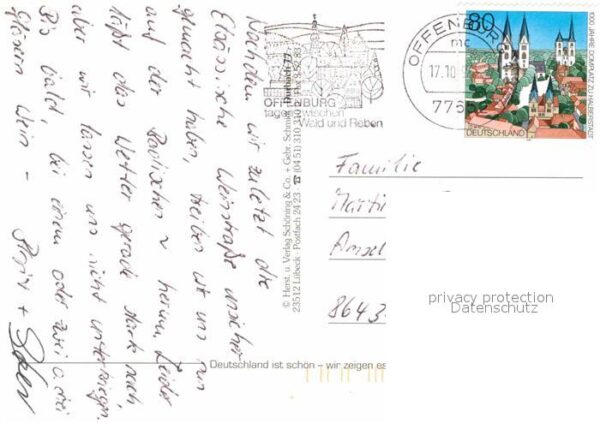 Nachdem wir zuletzt die
Elsässische Weinstraße unsicher
gemacht haben, treiben wir uns nun
auf der Badischen ~ herum. Leider
läßt das Wetter gerade stark nach
aber wir lassen uns nicht unterkriegen.
Bis bald bei einem oder zwei o. drei
Gläsern Wein –
© Herst. u. Verlag Schöning & Co. + Gebr. Schmidt
23512 Lübeck · Postfach 24 23 · ☎ (04 51) 310 310
OFFENBURG
tagen zwischen
Wald und Reben
OFFENBURG
mc
17.10
776
80
DEUTSCHLAND
1000 JAHRE DOMPLATZ ZU HALBERSTADT
Familie
Marti
8643
privacy protection
Datenschutz
Deutschland ist schön – wir zeigen es